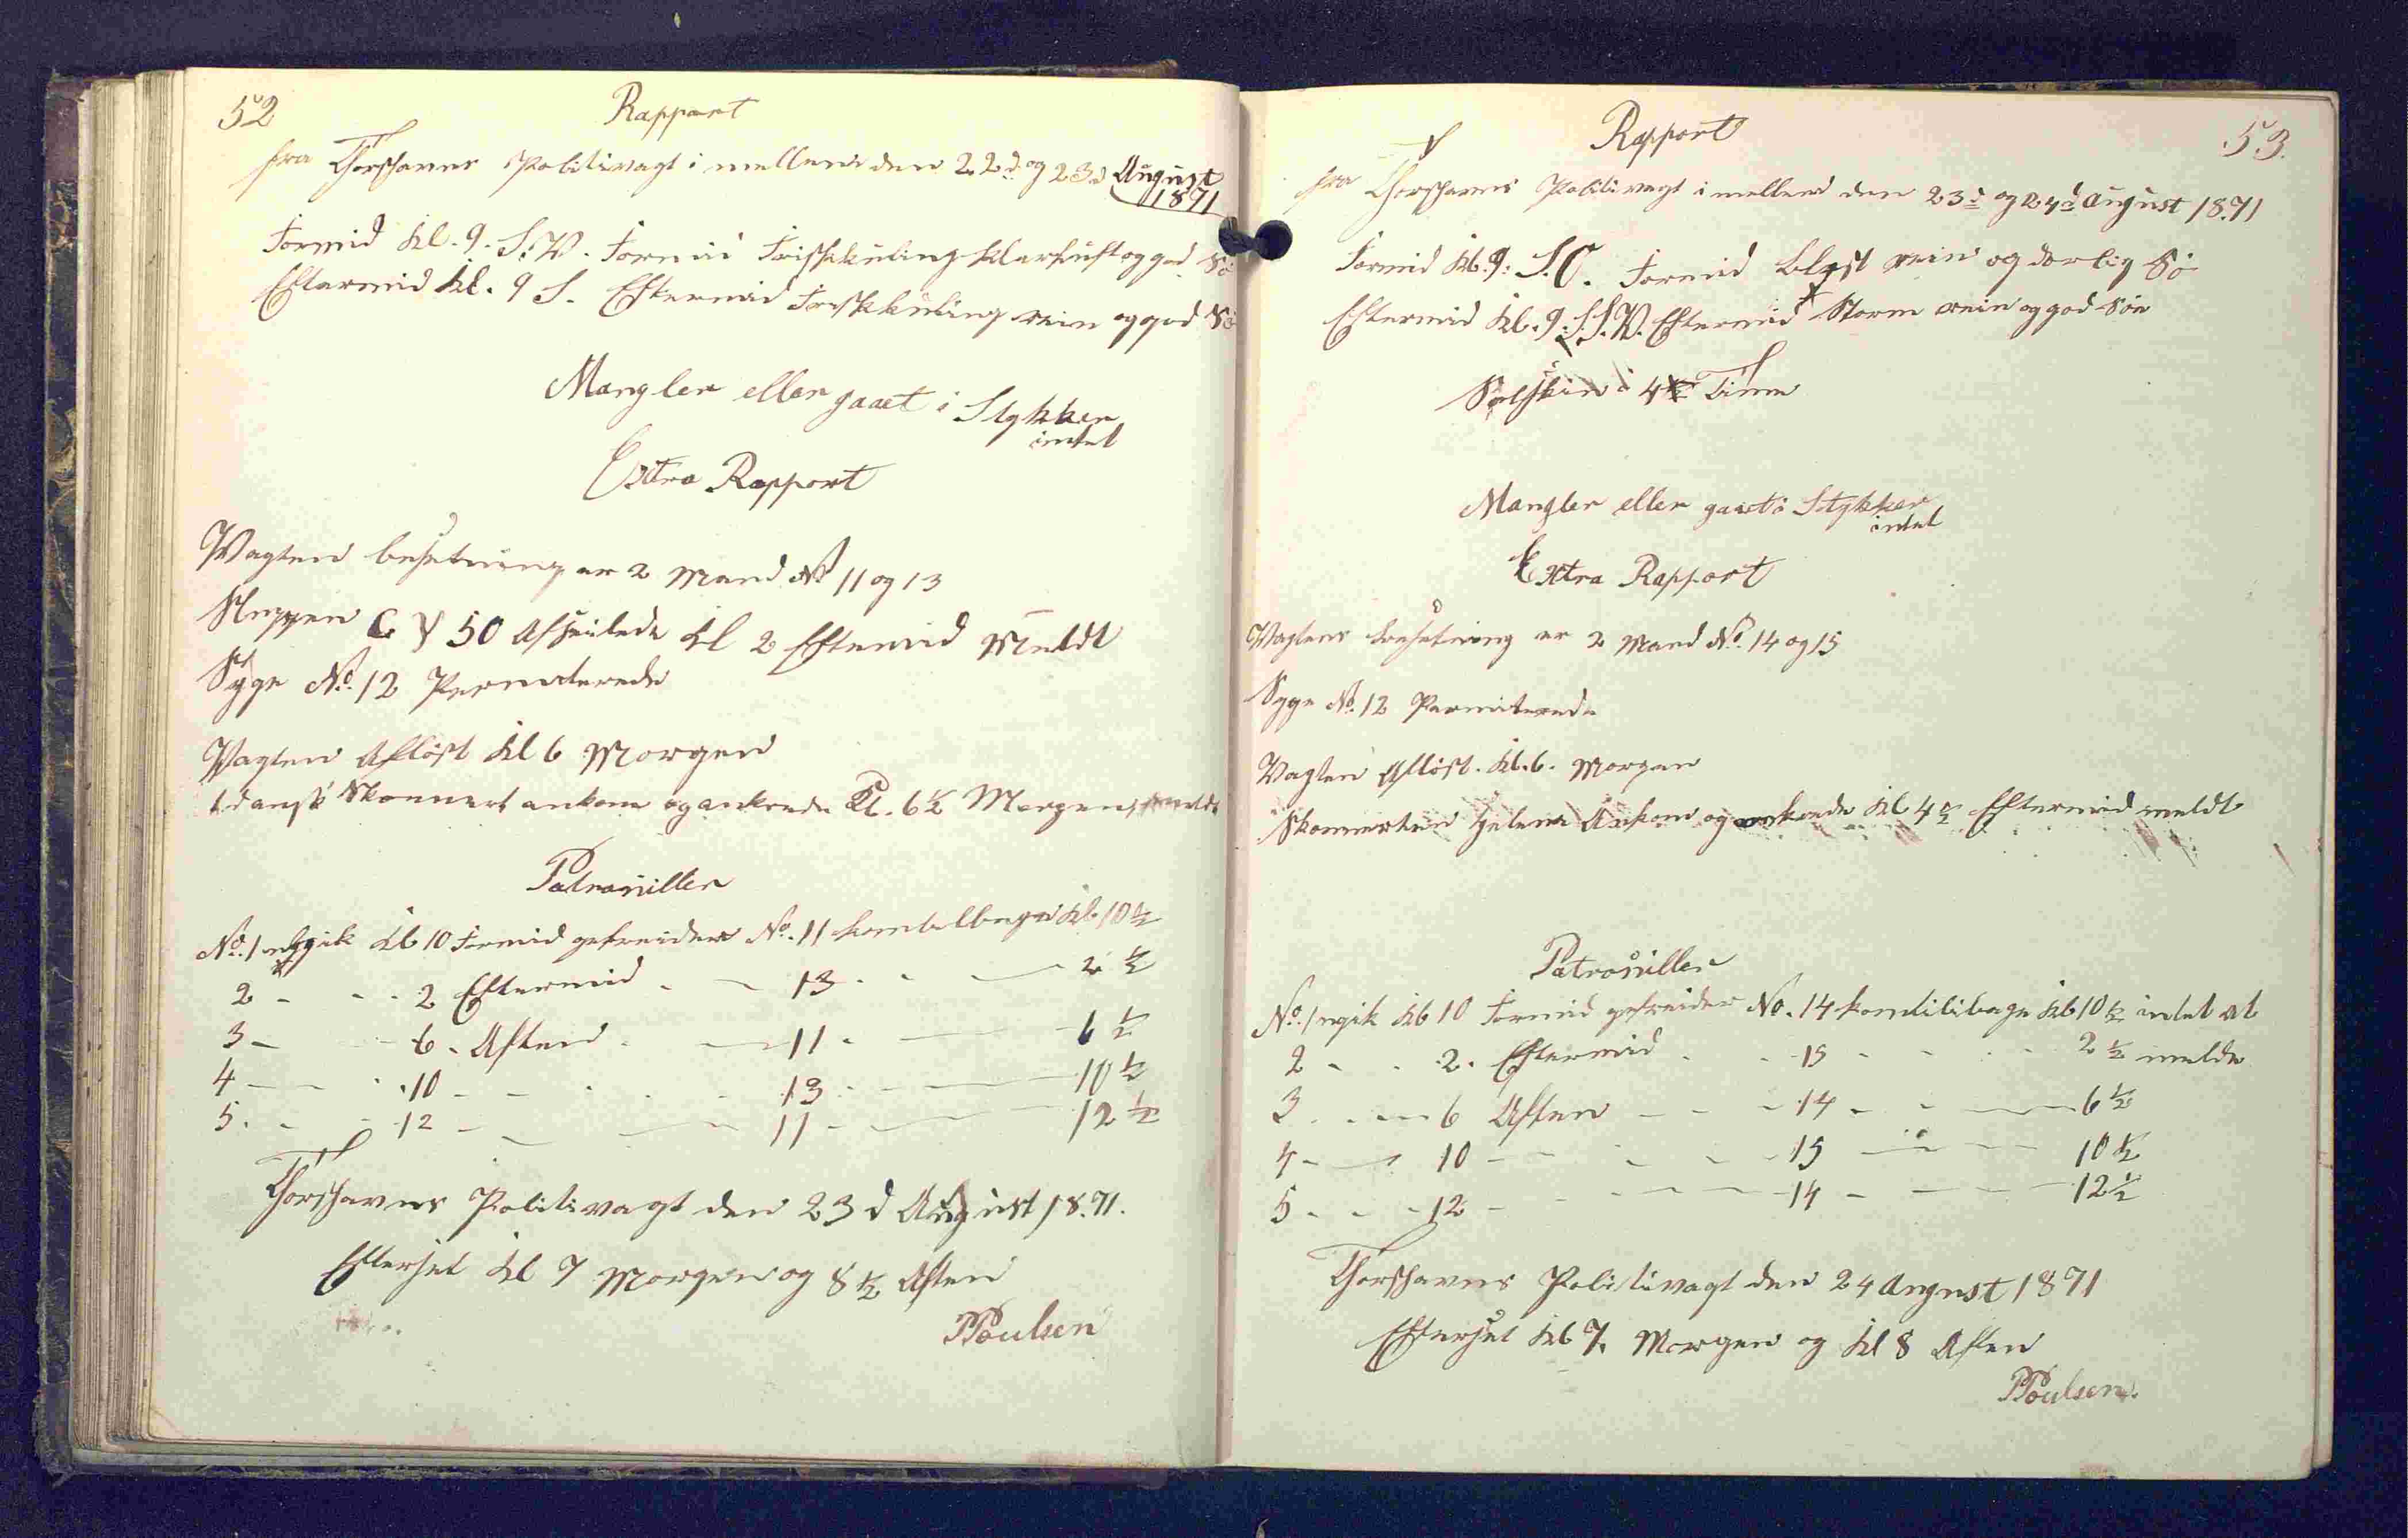 52
Rapport
fra Thorshavns Politivagt i mellem den 22d og 23d August
1871
Formid Kl. 9. S.V. Formid Friskkuling klarluft og god Sö
Eftermid Kl. 9 S. Eftermid Friskkuling rein og god Sö
Mangler eller gaaet i Stykker
intet
Extra Rapport
Vagten besetning er 2 Mand No 11 og 13
Sluppen C Y 50 Afseilede Kl 2 Eftermid Meldt
Syge No. 12 Permiterede
Vagten Aflöst Kl 6 Morgen
1 dansk Skonnert ankom og ankrede Kl. 6½ Morgen, meldt
Patrouiller
No. 1 udgik Kl 10 Formid gefreider No. 11 kom tilbage Kl 10½
2 - - - 2 Eftermid - - 13 - - - 2½
3 - - 6 - Aften - - 11 - - 6½
4 - - 10 - - - - 13 - - - 10½
5. - - 12 - - - - 11 - - - 12½
Thorshavns Politivagt den 23d August 1871.
Efterset Kl 7 Morgen og 8½ Aften
PPoulsen
Rapport
53.
fra Thorshavns Politivagt i mellem den 23d og 24d August 1871
Formid Kl. 9: S.O. Formid Blæst rein og darlig Sö
Eftermid Kl. 9: S.S.V. Eftermid Storm rein og god Söe
Solskin i 4 Time
Mangler eller gaaet i Stykker
intet
Extra Rapport
Vagtens besetning er 2 Mand No. 14 og 15
Syge No. 12 Permiterede
Vagten Aflöst. Kl. 6. Morgen
Skonnerten Helena Ankom og ankrede Kl 4½ Eftermid meldt
Patrouiller
No. 1 ugik Kl 10 Formid gefreider No. 14 kom tilbage Kl 10½ intet at
2 - - 2. Eftermid - - 15 - - - 2½ melde
3 - - 6 Aften - - - 14 - - - 6½
4 - - 10 - - - - 15 - - - 10½
5 - - - 12 - - - - 14 - - - 12½
Thorshavns Politivagt den 24 August 1871
Efterset Kl 7. Morgen og Kl 8 Aften
PPoulsen.